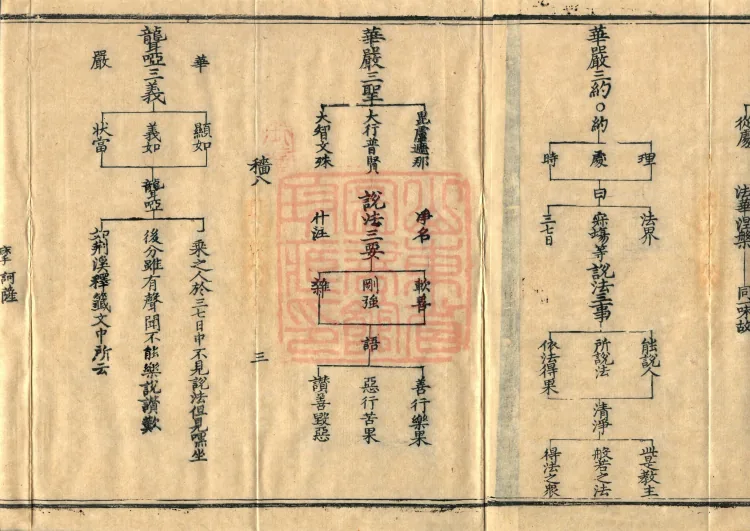 從處
法華涅槃
同一味故
華嚴三約〇約
理
處
時
曰
法界
寂場等
三七日
說法三事
能說人
所說法
依法得果
清淨
此是教主
般若之法
得法之眾
華嚴三聖
毘盧遮那
大行普賢
大智文殊
說法三要
淨名
什注
軟善
剛強
雜
語
善行樂果
惡行苦果
讚善毀惡
穡八
三
聾啞三義
華
嚴
顯如
義如
狀當
聾啞
乘之人於三七日中不見說法但見嘿坐
後分雖有聲聞不能樂說讚歎
如荊溪釋籤文中所云
訶薩